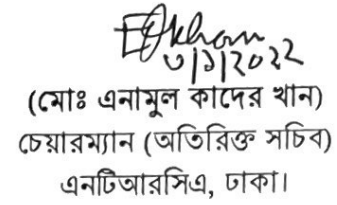 ৩/১/২০২২
(মোঃ এনামুল কাদের খান)
চেয়ারম্যান (অতিরিক্ত সচিব)
এনটিআরসিএ, ঢাকা।